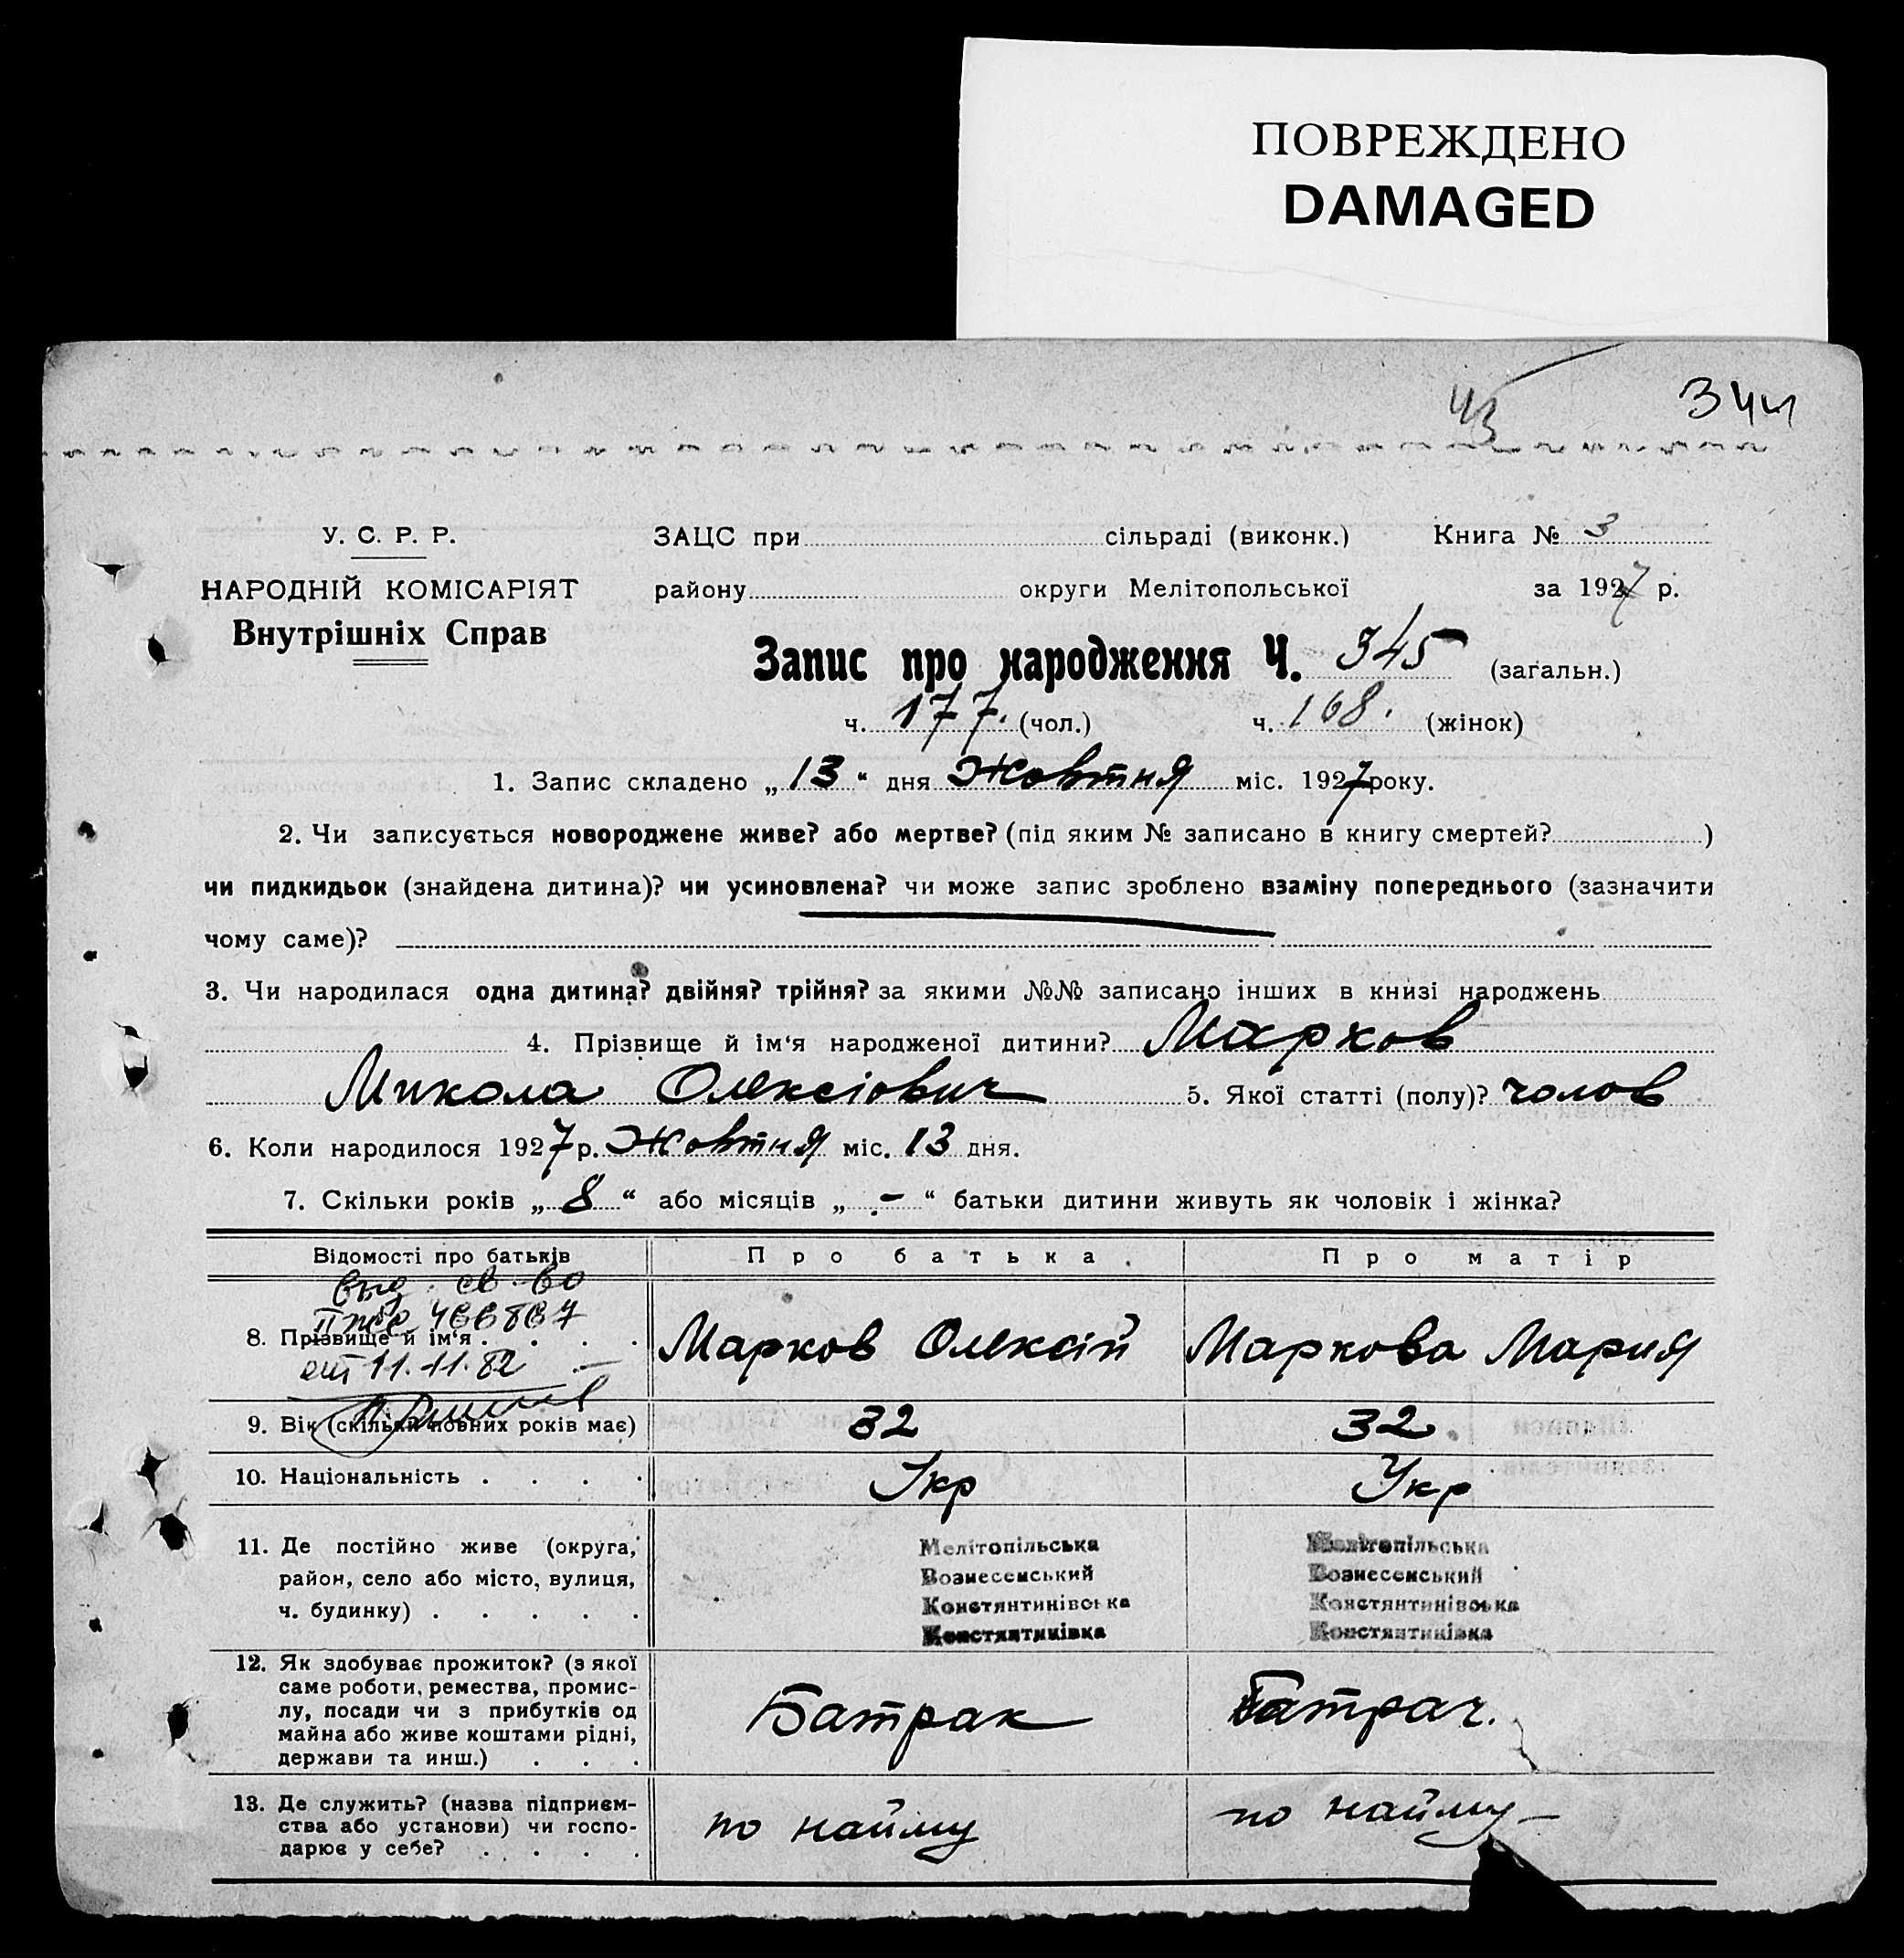 ПОВРЕЖДЕНО
DAMAGED
43 344
У. С. Р. Р.
НАРОДНІЙ КОМІСАРІЯТ
Внутрішніх Справ
ЗАЦС при сільраді (виконк.) Книга № 3
району округи Мелітопольської за 1927 р.
Запис про народження Ч. 345 (загальн.)
ч. 177. (чол.) ч. 168. (жінок)
1. Запис складено „13“ дня Жовтня міс. 1927 року.
2. Чи записується новороджене живе? або мертве? (під яким № записано в книгу смертей? )
чи пидкидьок (знайдена дитина)? чи усиновлена? чи може запис зроблено взаміну попереднього (зазначити
чому саме)?
3. Чи народилася одна дитина? двійня? трійня? за якими №№ записано інших в книзі народжень
4. Прізвище й ім‘я народженої дитини? Марков
Микола Олексіович 5. Якої статті (полу)? чолов
6. Коли народилося 1927 р. Жовтня міс. 13 дня.
7. Скільки років „8“ або місяців „-“ батьки дитини живуть як чоловік і жінка?
Відомості про батьків Про батька. Про матір
выд. св-во
466867
8. Прізвище й ім‘я . . . . Марков Олексій Маркова Мария
от 11.11.82
9. Вік (скільки повних років має) 32 32
10. Національність . . . . Укр Укр
11. Де постійно живе (округа, район, село або місто, вулиця, ч. будинку) . . . . .
Мелітопільська Мелітопільська
Вознесенський Вознесенський
Констянтинівська Констянтинівська
Констянтинівка Констянтинівка
12. Як здобуває прожиток? (з якої
саме роботи, ремества, промис-
лу, посади чи з прибутків од
майна або живе коштами рідні,
держави та инш.) . . .
Батрак Батрач.
13. Де служить? (назва підприєм-
ства або установи) чи госпо-
дарює у себе? . . . .
по найму по найму